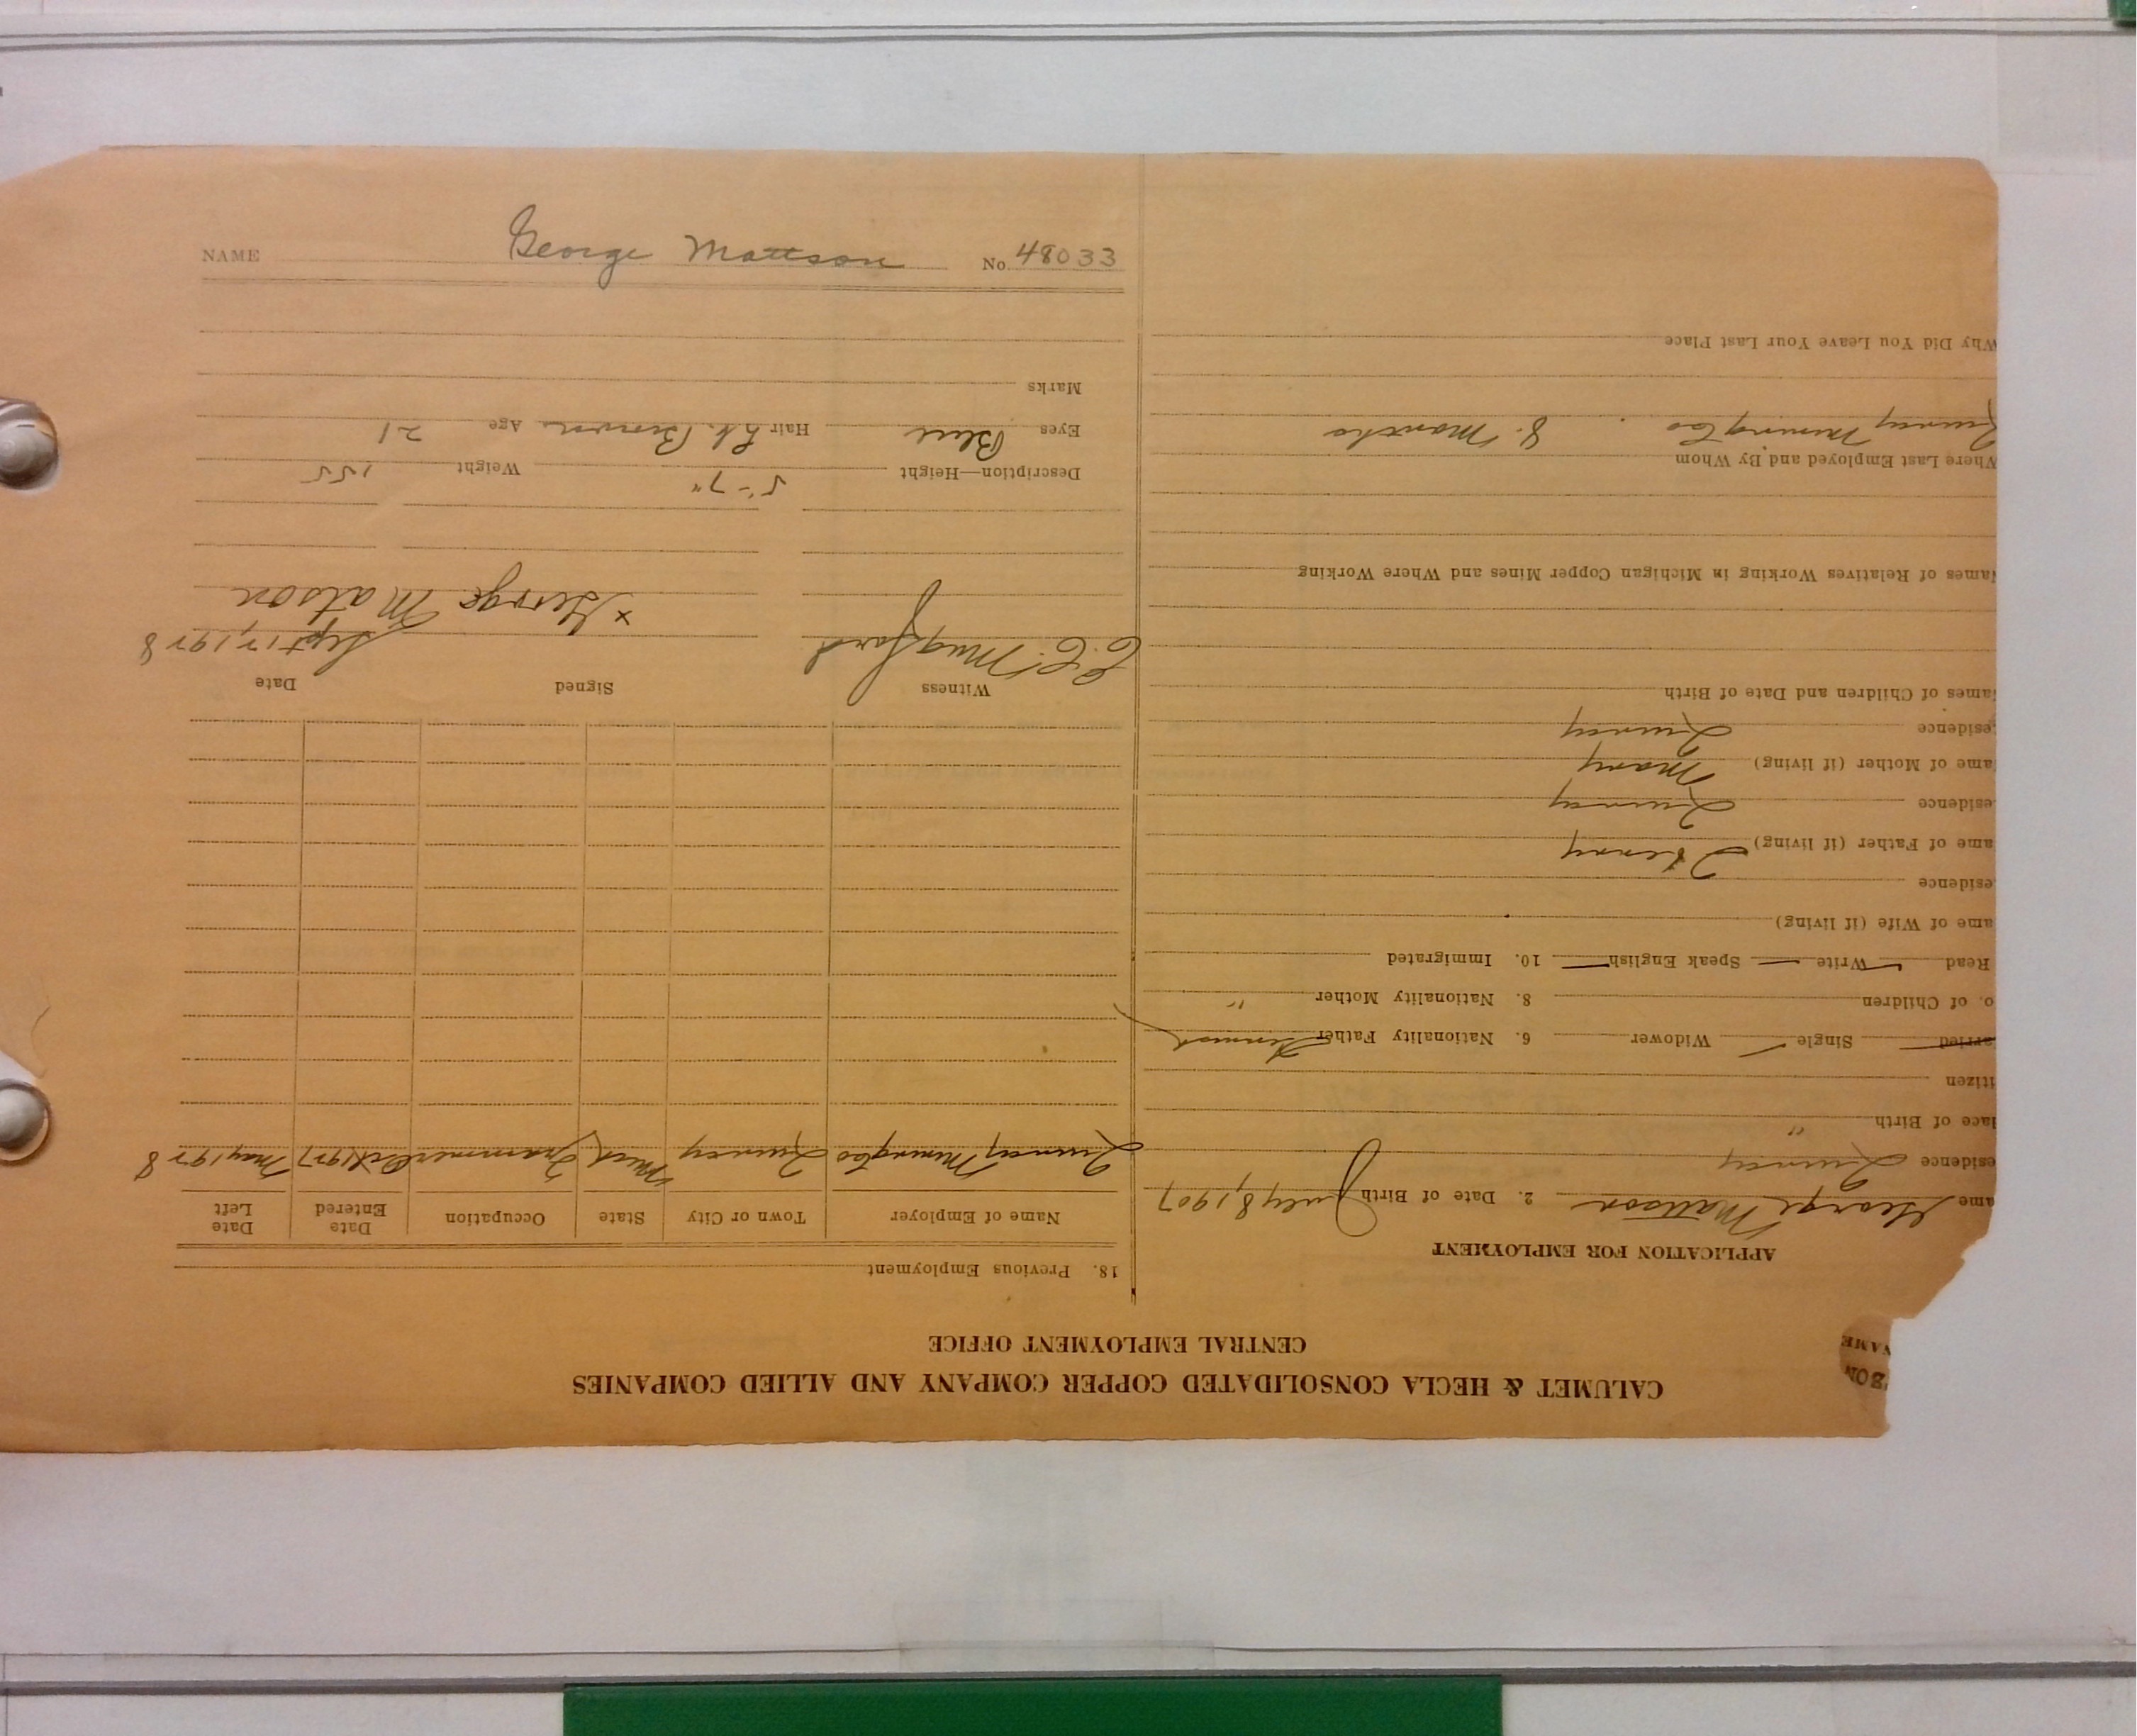 CALUMET & HECLA CONSOLIDATED COPPER COMPANY AND ALLIED COMPANIES
CENTRAL EMPLOYMENT OFFICE
APPLICATION FOR EMPLOYMENT
ame George Mattson 2. Date of Birth July 8, 1907
esidence Quincy
lace of Birth "
itizen
arried Single Widower 6. Nationality Father Finnish
o. of Children 8. Nationality Mother "
Read Write Speak English 10. Immigrated
ame of Wife (if living)
esidence
ame of Father (if living) Henry
esidence Quincy
ame of Mother (if living) Mary
esidence Quincy
ames of Children and Date of Birth
ames of Relatives Working in Michigan Copper Mines and Where Working
Where Last Employed and By Whom
Quincy Mining Co 8. Months
Why Did You Leave Your Last Place
18. Previous Employment
Name of Employer Town or City State Occupation Date Entered Date Left
Quincy Mining Co Quincy Mich Trammer Oct 1927 May 1928
Witness Signed Date
E.C. Mugford x George Matson Sept 17, 1928
Description—Height 5'-7" Weight 155
Eyes Blue Hair Lt. Brown Age 21
Marks
NAME George Mattson No. 48033